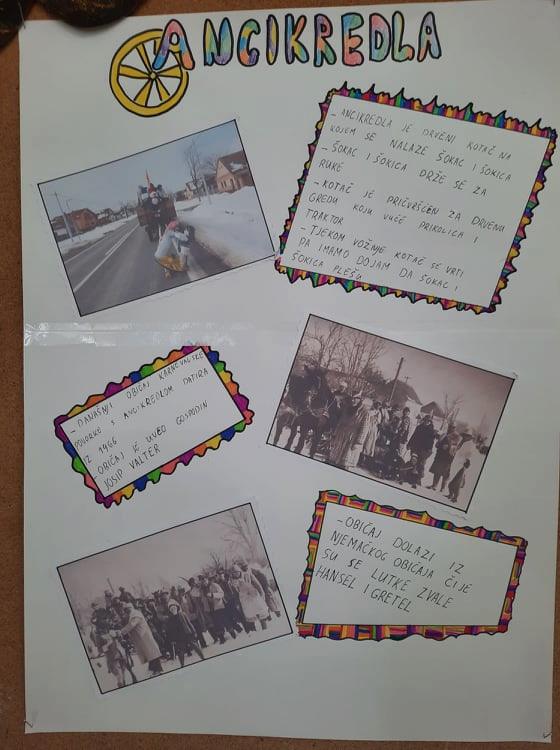 ANCIKREDLA
- ANCIKREDLA JE DRVENI KOTAČ NA
KOJEM SE NALAZE ŠOKAC I ŠOKICA
- ŠOKAC I ŠOKICA DRŽE SE ZA
RUKE
- KOTAČ JE PRIČVRŠĆEN ZA DRVENU
GREDU KOJU VUČE PRIKOLICA I
TRAKTOR
- TIJEKOM VOŽNJE KOTAČ SE VRTI
PA IMAMO DOJAM DA ŠOKAC I
ŠOKICA PLEŠU
- DANAŠNJI OBIČAJ KARNEVALSKE
POVORKE S ANCIKREDLOM DATIRA
IZ 1966
OBIČAJ JE UVEO GOSPODIN
JOSIP VALTER
- OBIČAJ DOLAZI IZ
NJEMAČKOG OBIČAJA ČIJE
SU SE LUTKE ZVALE
HANSEL I GRETEL